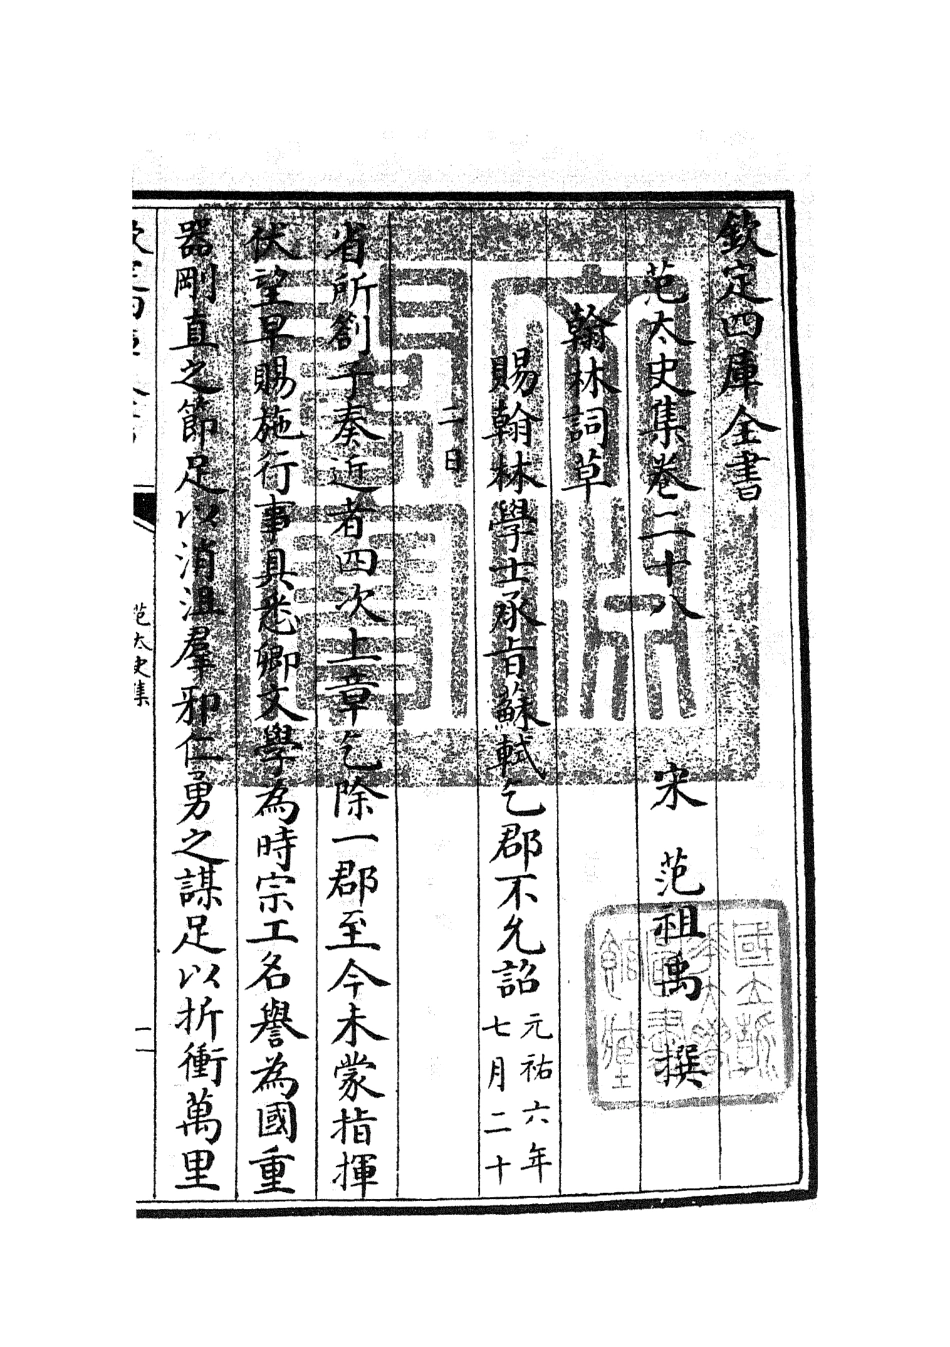 欽定四庫全書
范太史集卷二十八
宋 范祖禹 撰
翰林詞草
賜翰林學士承旨蘇軾乞郡不允詔 元祐六年
七月二十
二日
省所劄子奏近者四次上章乞除一郡至今未蒙指揮
伏望早賜施行事具悉卿文學為時宗工名譽為國重
器剛直之節足以消沮羣邪仁勇之謀足以折衝萬里
范太史集
一